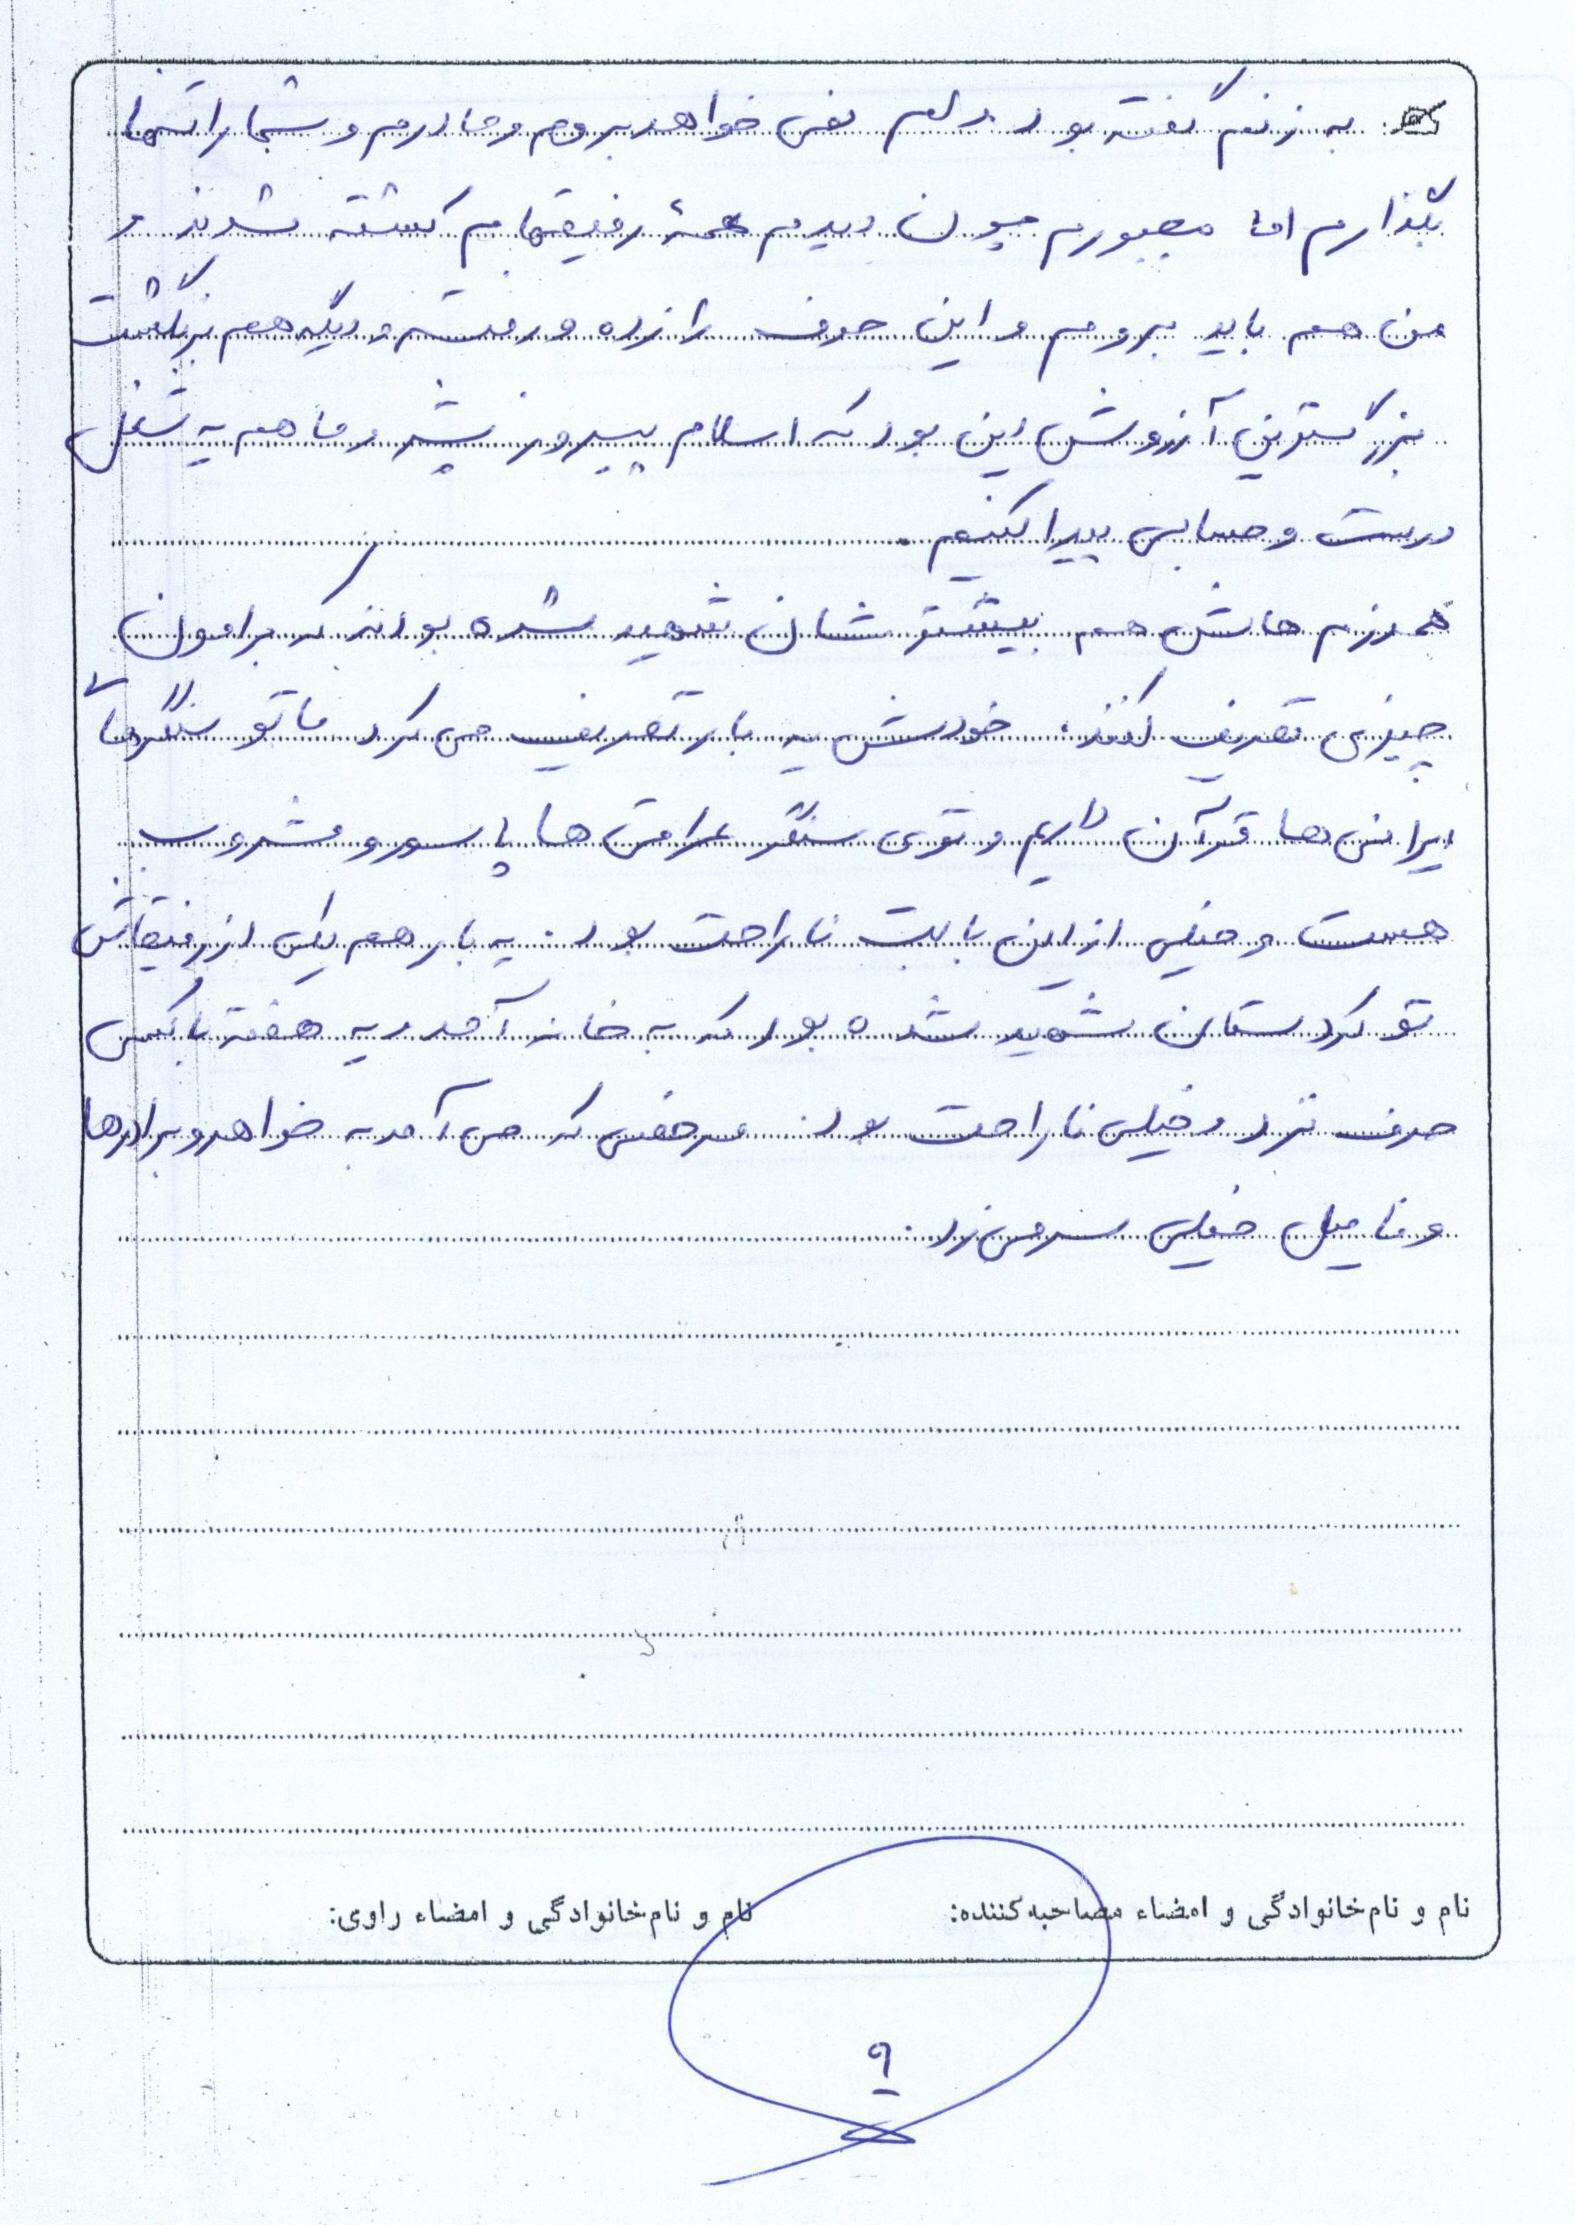 به زنم گفته بود دلم نمی خواهد بروم و مادرم و شما را تنها
بگذارم اما مجبورم چون دیدم همهٔ رفیقهایم کشته شدند و
من هم باید بروم و این حرف را زده و رفته و دیگه هم برنگشت
بزرگترین آرزوش این بود که اسلام پیروز بشه و ما هم یه شغل
درست و حسابی پیدا کنیم.
همرزم هاش هم بیشترشان شهید شده بودند که برامون
چیزی تعریف کنند. خودش یه بار تعریف می کرد ما تو سنگرها
ایرانی ها قرآن داریم و توی سنگر عراقی ها پاسور و مشروب
هست و خیلی از این بابت ناراحت بود. یه بار هم یکی از رفیقاش
تو کردستان شهید شده بود که به خانه آمد و یه هفته با کسی
حرف نزد و خیلی ناراحت بود. مرخصی که می آمد به خواهر و برادرها
و فامیل خیلی سر می زد.
نام و نام‌خانوادگی و امضاء مصاحبه‌کننده: نام و نام‌خانوادگی و امضاء راوی:
۹